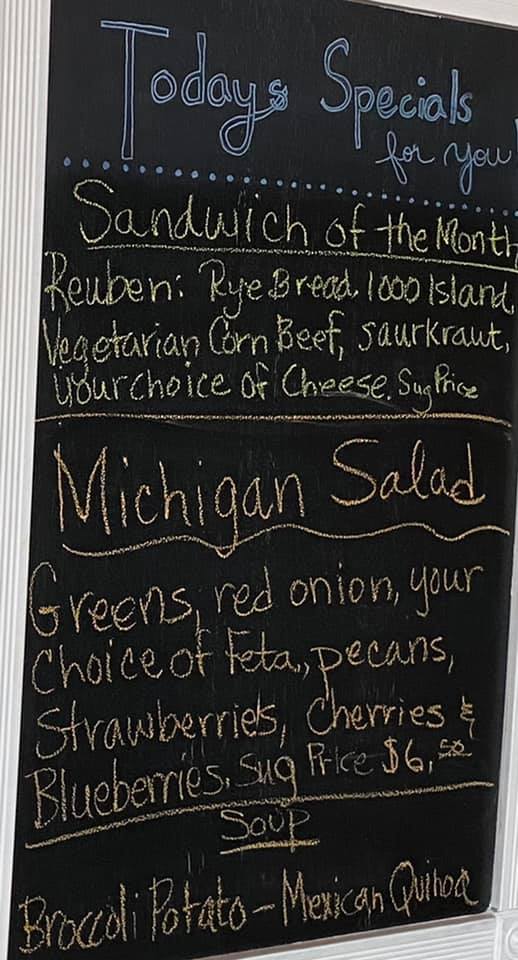 Todays Specials
for you!
Sandwich of the Month
Reuben: Rye Bread, 1000 Island,
Vegetarian Corn Beef, saurkraut,
your choice of Cheese. Sug Price
Michigan Salad
Greens, red onion, your
Choice of Feta, pecans,
Strawberries, Cherries &
Blueberries, Sug Price $6.50
Soup
Broccoli Potato - Mexican Quinoa